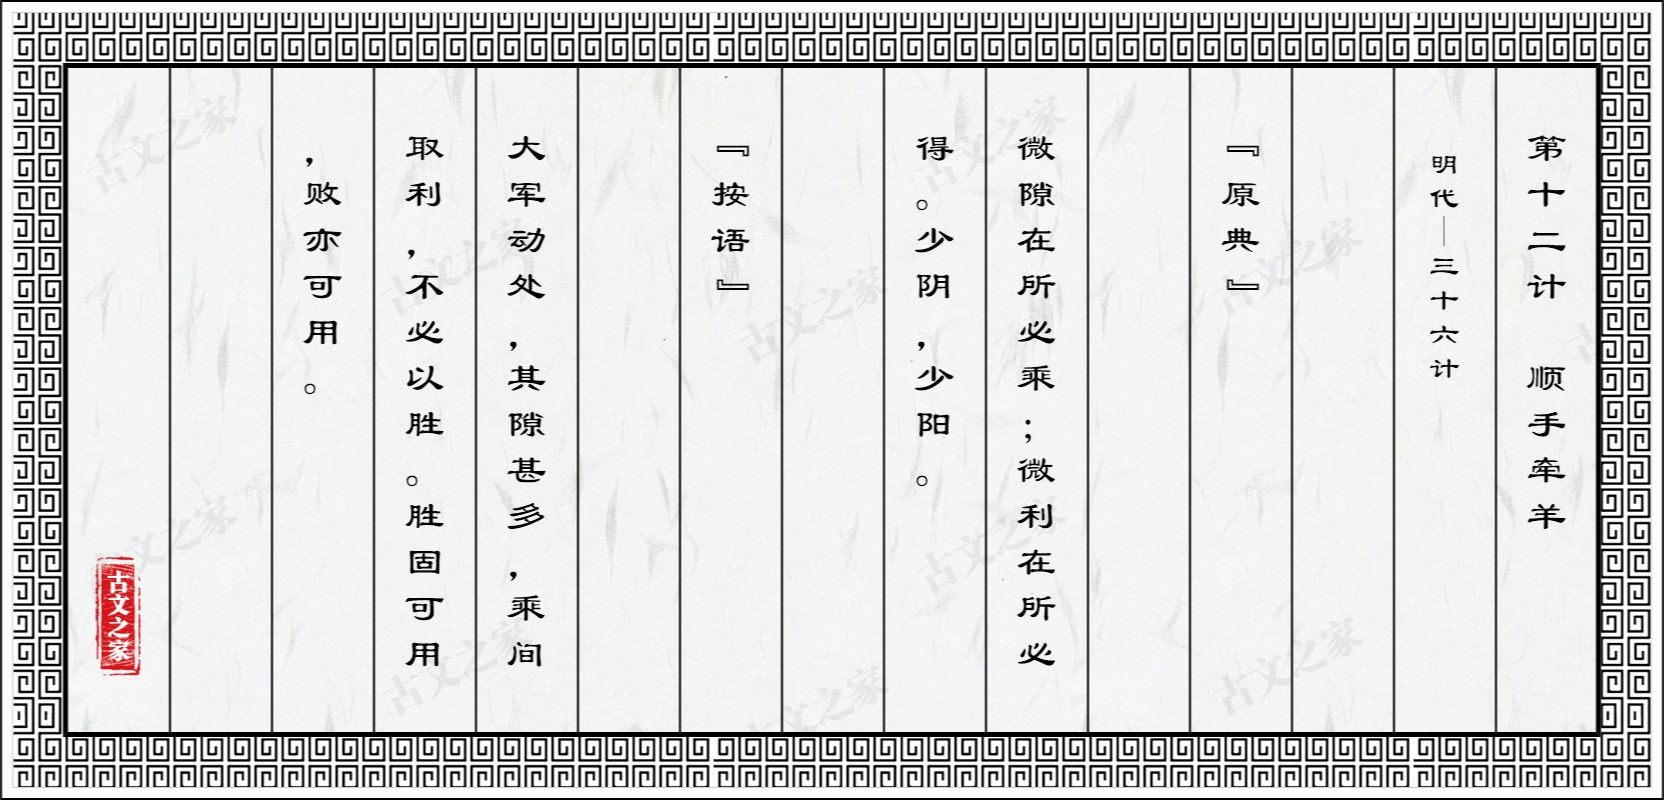 第十二计　顺手牵羊
明代—三十六计
『原典』
微隙在所必乘；微利在所必
得。少阴，少阳。
『按语』
大军动处，其隙甚多，乘间
取利，不必以胜。胜固可用
，败亦可用。
古文之家